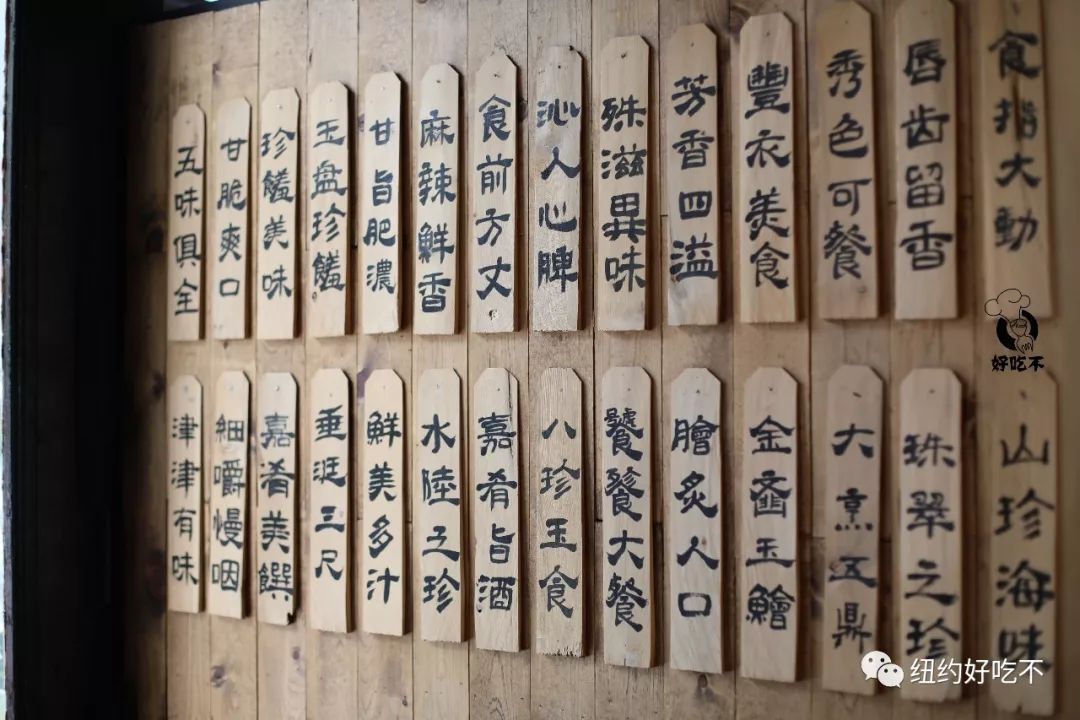 食指大動
唇齿留香
秀色可餐
豐衣美食
芳香四溢
殊滋異味
沁人心脾
食前方丈
麻辣鮮香
甘旨肥濃
玉盘珍饈
珍饈美味
甘脆爽口
五味俱全
山珍海味
珠翠之珍
大烹五鼎
金齑玉鱠
膾炙人口
饕餮大餐
八珍玉食
嘉肴旨酒
水陸之珍
鮮美多汁
垂涎三尺
嘉肴美饌
細嚼慢咽
津津有味
好吃不
纽约好吃不